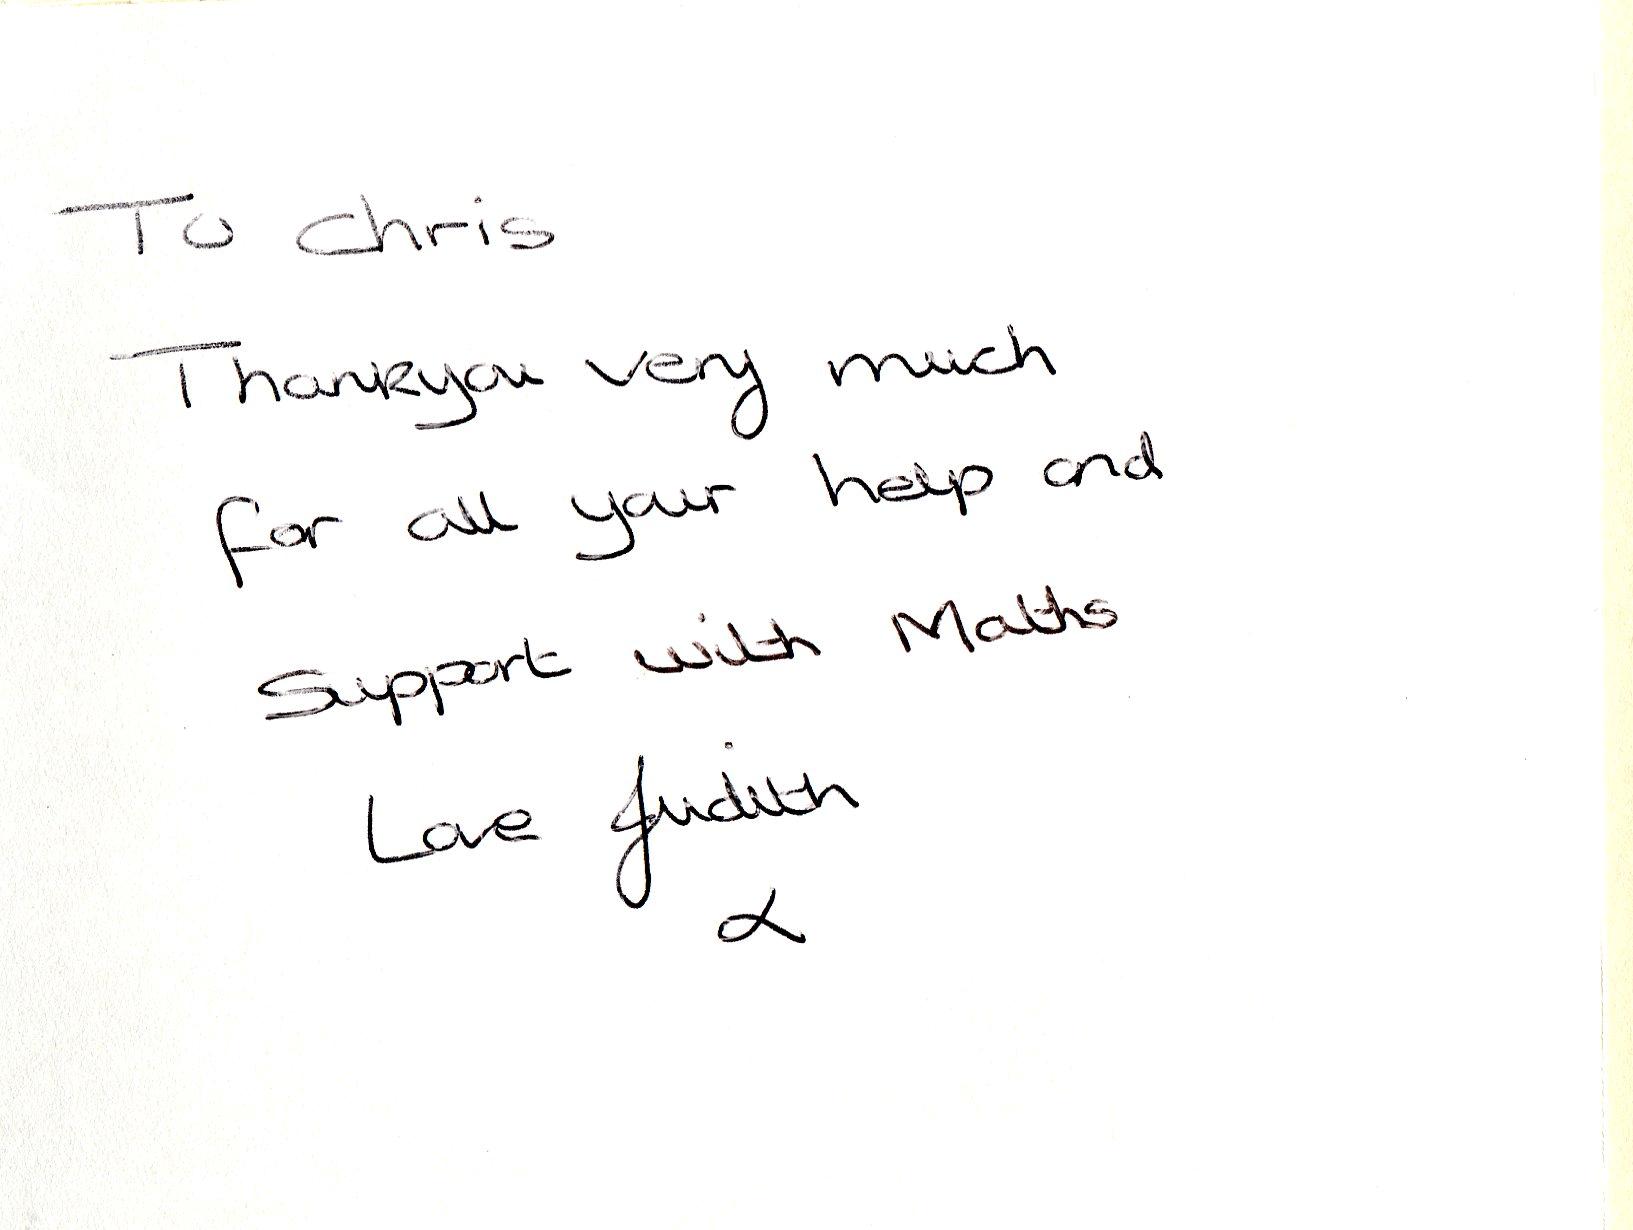 To Chris
Thankyou very much
for all your help and
Support with Maths
Love Judith
x